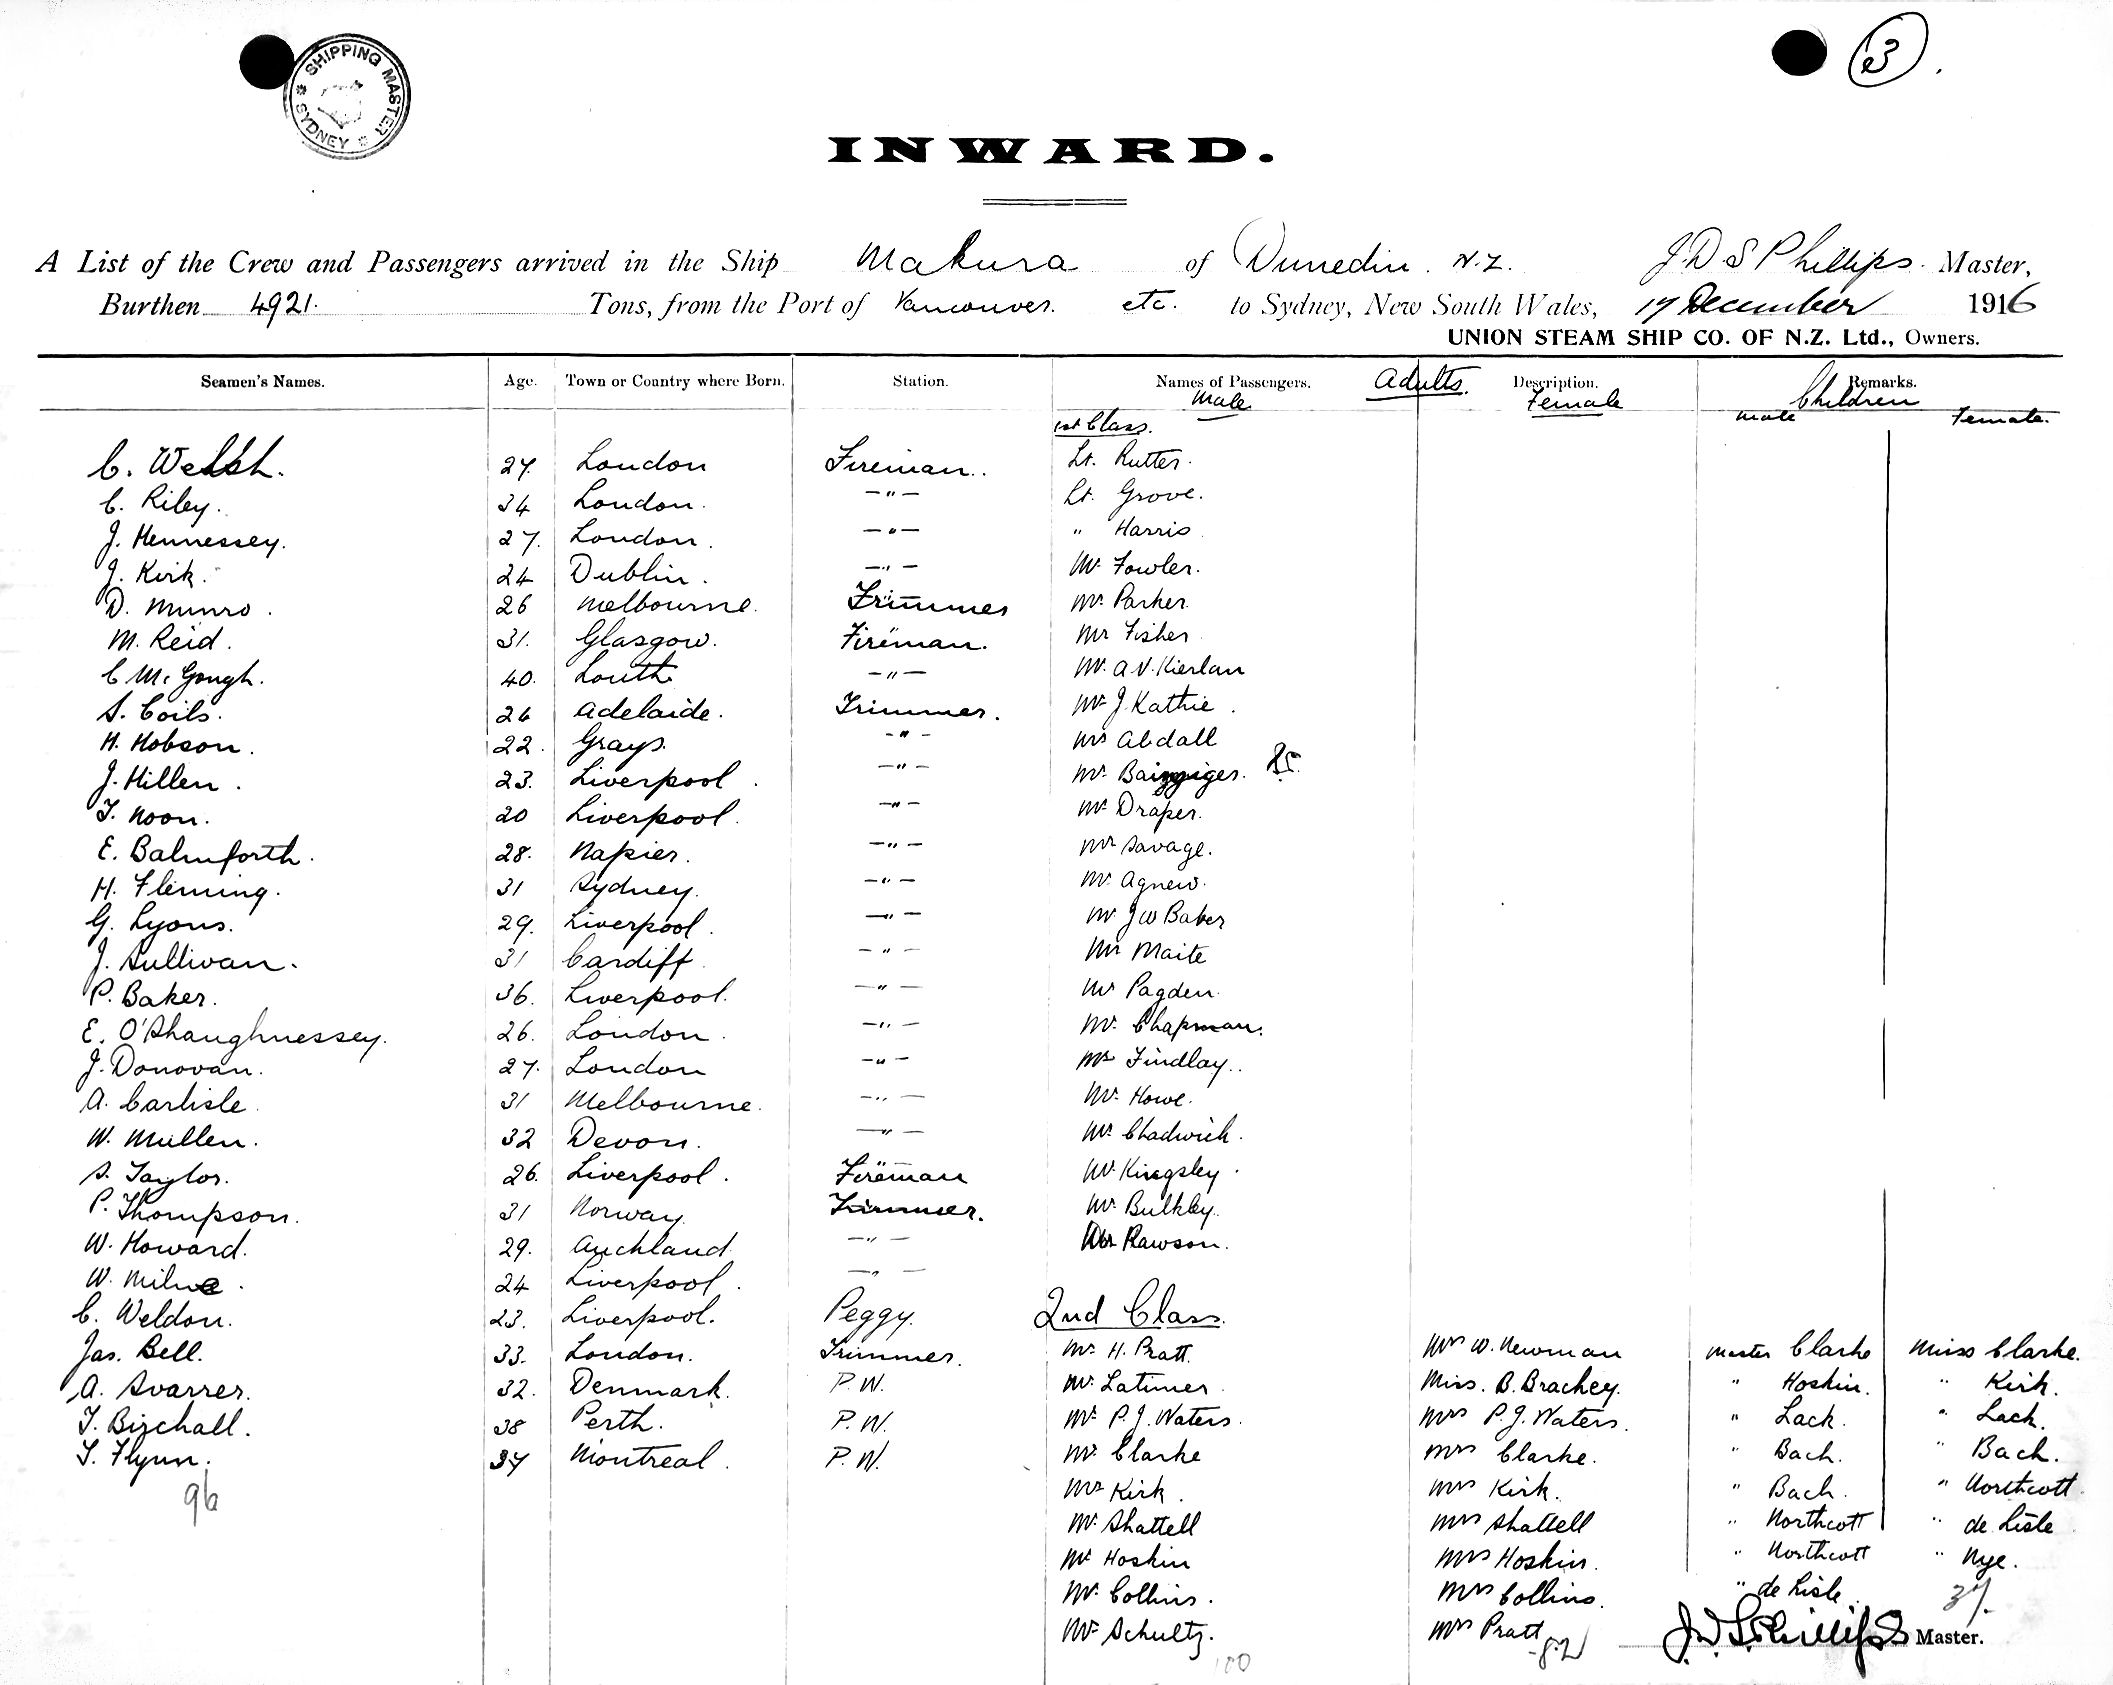 SHIPPING MASTER SYDNEY
3
INWARD.
A List of the Crew and Passengers arrived in the Ship Makura of Dunedin N.Z. J.D.S Phillips. Master,
Burthen 4921. Tons, from the Port of Vancouver. etc. to Sydney, New South Wales, 17 December 1916
UNION STEAM SHIP CO. OF N.Z. Ltd., Owners.
Seamen's Names. Age. Town or Country where Born. Station. Names of Passengers. Adults. Description. Remarks.
Male Female Children
1st Class. Male Female.
C. Welsh. 27. London Fireman. Lt. Rutter.
C. Riley. 34 London. —"— Lt. Grove.
J. Hennessey. 27. London. —"— " Harris
J. Kirk. 24 Dublin. —"— Mr. Fowler.
D. Munro. 26 Melbourne. Trimmer Mr. Parker
M. Reid. 31. Glasgow. Fireman. Mr Fisher
C McGough. 40. Louth. —"— Mr. A.V. Kierlan
S. Coils. 26 Adelaide. Trimmer. Mr J. Kathie.
H. Hobson. 22. Grays. —"— Mr Abdall
J. Hillen. 23. Liverpool. —"— Mr.
T. Noon. 20 Liverpool. —"— Mr Draper.
E. Balmforth. 28. Napier. —"— Mr Savage.
H. Fleming. 31 Sydney. —"— Mr. Agnew.
G. Lyons. 29. Liverpool. —"— Mr J W Baker
J. Sullivan. 31 Cardiff. —"— Mr Maite
P. Baker. 36. Liverpool. —"— Mr Pagden.
E. O'Shaughnessey. 26. London. —"— Mr. Chapman.
J. Donovan. 27. London —"— Mr Findlay.
A. Carlisle. 31 Melbourne. —"— Mr. Howe.
W. Mullen. 32 Devon. —"— Mr Chadwick.
S. Taylor. 26. Liverpool. Fireman Mr. Kingsley.
P. Thompson. 31 Norway. Trimmer. Mr. Bulkley.
W. Howard. 29. Auckland. —"— Mr Rawson.
W. Milne. 24 Liverpool. —"—
C. Weldon. 23. Liverpool. Peggy. 2nd Class.
Jas. Bell. 33. London. Trimmer. Mr. H. Pratt. Mrs W. Newman Master Clarke Miss Clarke.
A. Svarrer. 32. Denmark. P.W. Mr. Latimer. Miss. B. Brachey. " Hoskin. " Kirk.
T. Birchall. 38 Perth. P.W. Mr P.J. Waters. Mrs P.J. Waters. " Lack. " Lack.
T. Flynn. 37 Montreal. P.W. Mr Clarke Mrs Clarke. " Bach. " Bach.
96 Mr Kirk. Mrs Kirk. " Bach. " Northcott
Mr. Shattell Mrs Shattell " Northcott " de Lisle
Mr Hoskin Mrs Hoskin. " Northcott " Nye.
Mr. Collins. Mrs Collins. " de Lisle
Mr Schultz. Mrs Pratt J.D.S. Phillips Master.